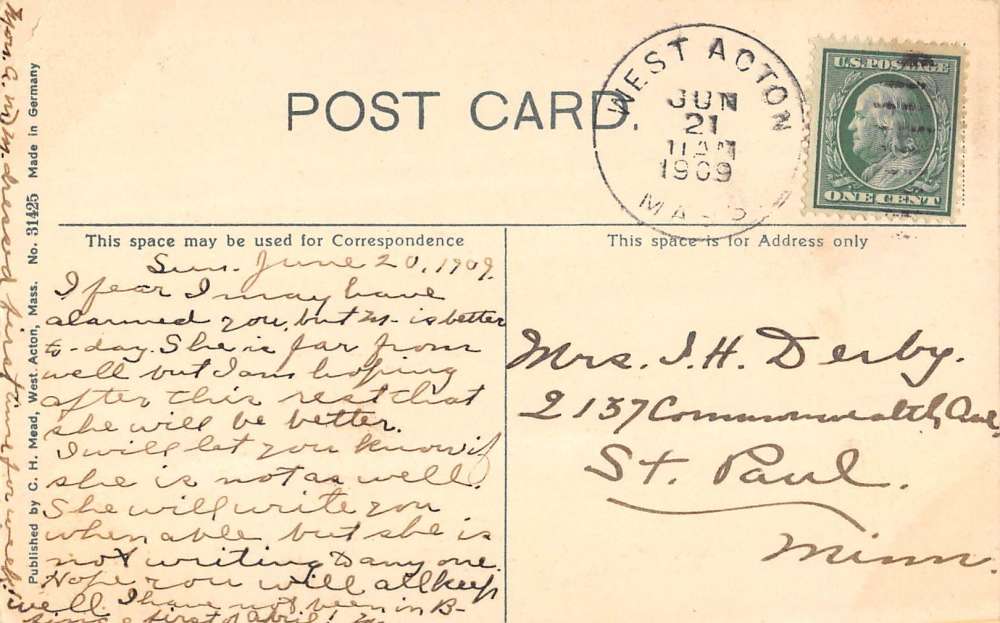 POST CARD.
WEST ACTON
JUN
21
11 AM
1909
MASS
U.S. POSTAGE
ONE CENT
This space may be used for Correspondence
This space is for Address only
Sun. June 20, 1909.
I fear I may have
alarmed you, but M- is better
to-day. She is far from
well but I am hoping
after this rest that
she will be better.
I will let you know if
she is not as well.
She will write you
when able but she is
not writing to any one.
Hope you will all keep
well. I have not been in B-
since first of April.
Mrs. J. H. Derby.
2137 Commonwealth Ave,
St. Paul.
Minn.
Published by C. H. Mead, West Acton, Mass. No. 31425 Made in Germany
dressed first time for week